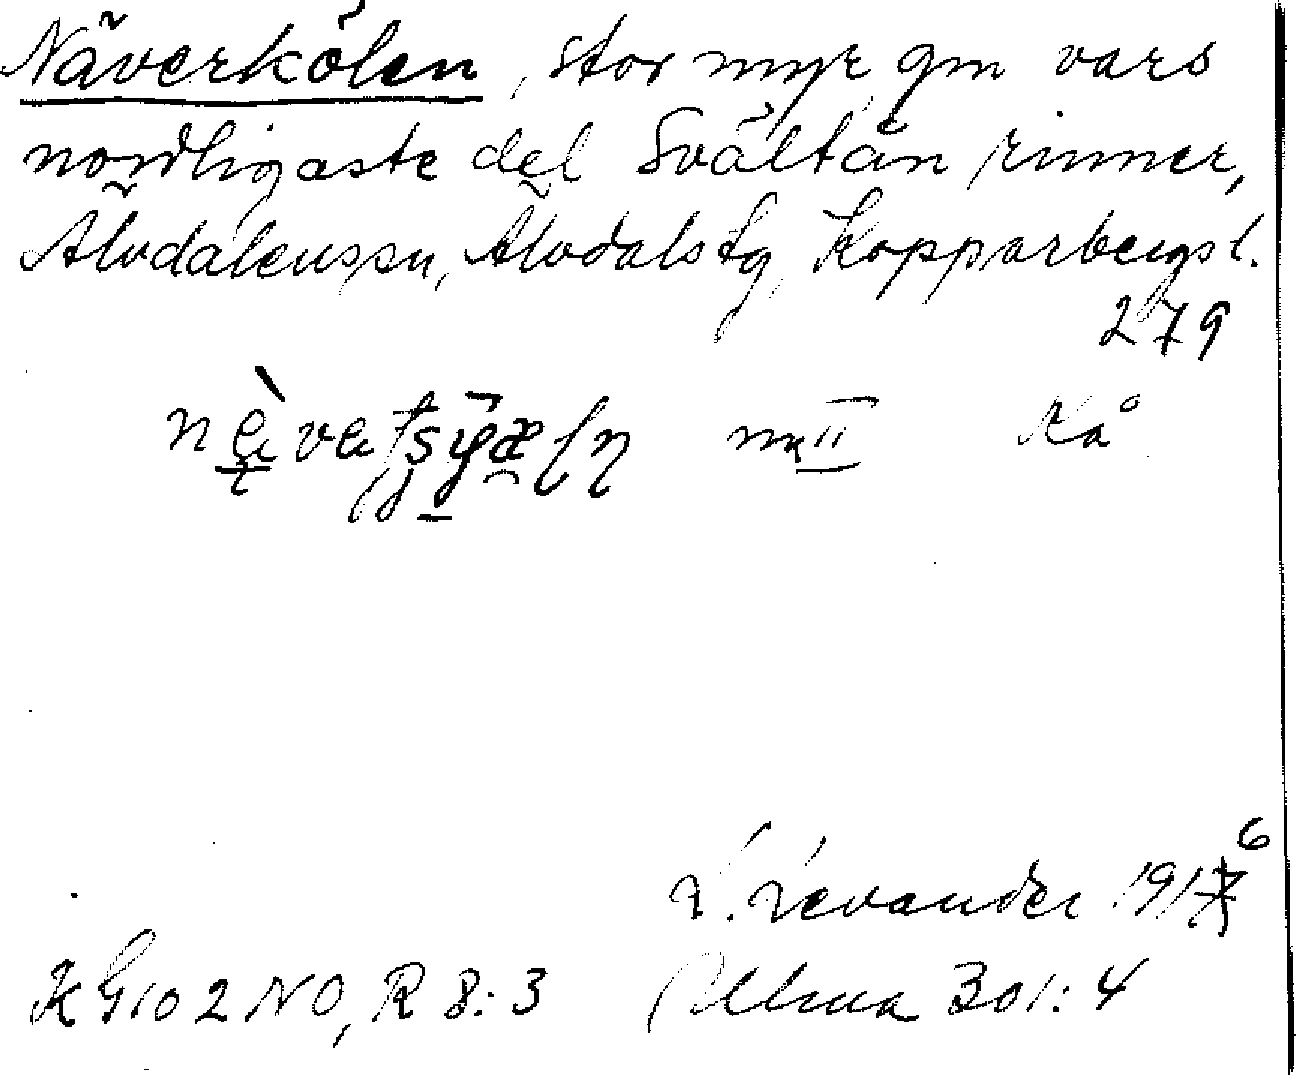 Näverkölen, stor myr gm vars
nordligaste del Svältån rinner,
Älvdalens sn, Älvdals tg, Kopparbergs l.
279
Kå
L. Levander 1916
K G 102 NO, R 8:3 Ulma 301:4